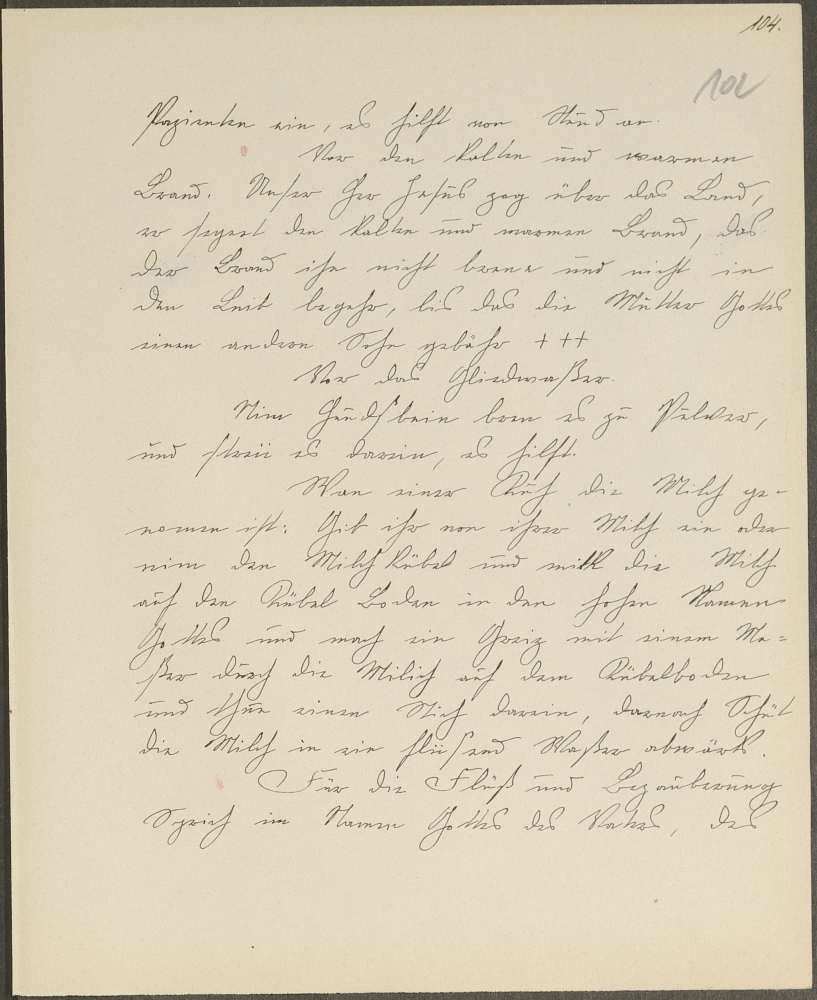 104.
102
Pazienten ein, es hilft von Stund an.
Vor den kalten und warmen
Brand. Unser Her Jesus zog über das Land,
er segert den kalten und warmen Brand, das
der Brand ihn nicht brene und nicht in
den Leib begehr, bis das die Mutter Gottes
einen andern Sohn gebähr + + +
Vor das Gliedwaßer.
Nim Hundsbein bren es zu Pulver,
und streü es darein, es hilft.
Wan einer Kuh die Milch ge-
nomen ist: Gib ihr von ihrer Milch ein oder
nim den Milch Kübel und milk die Milch
auf den Kübel Boden in den hohen Namen
Gottes und mach ein Greiz mit einem Me-
ßer durch die Milich auf dem Kübelboden
und thue einen Stich darein, darnach Schüt
die Milch in ein flüsend Waßer abwärts.
Für die Flüß und Bezauberung
Sprich im Namen Gottes des Vaters, des